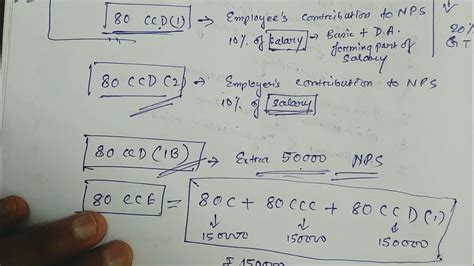 80 CCD(1) → Employee's contribution to NPS
10% of salary → Basic + D.A.
forming part of
salary
20%
G T
80 CCD(2) → Employer's contribution to NPS
10% of salary
80 CCD(1B) → Extra 50000 NPS
80 CCE = 80C + 80CCC + 80CCD(1)
↓ ↓ ↓
150000 150000 150000
₹ 150000